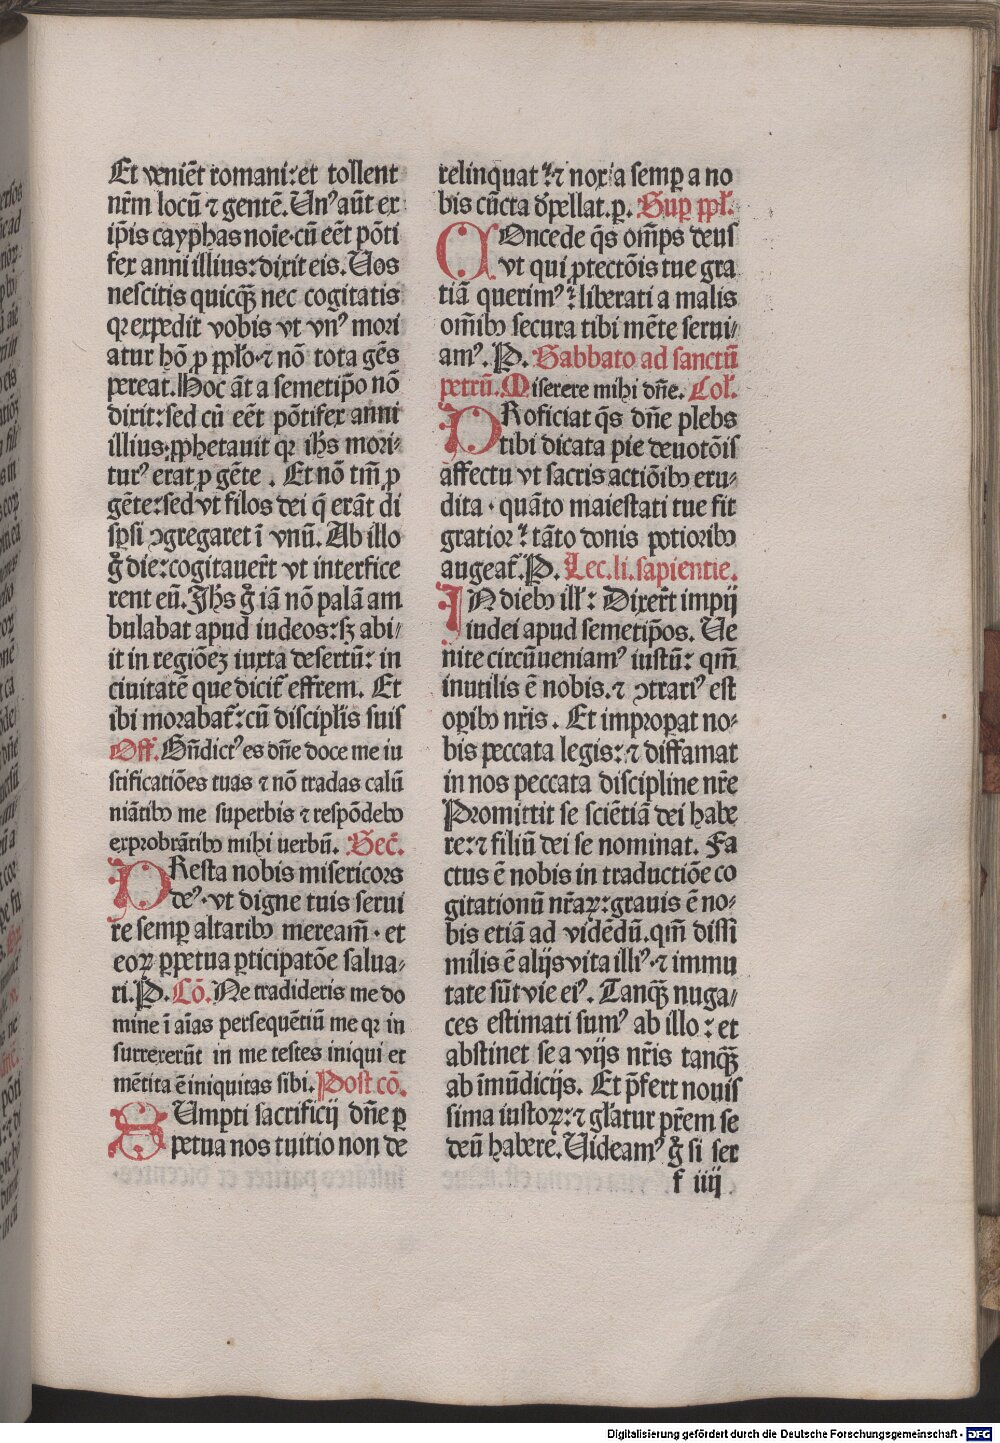 Et veniēt romani: et tollent
nr̄m locū ⁊ gentē. Vn⁹ aūt ex
ip̄is cayphas noīe· cū eēt pōti
fex anni illius: dixit eis. Vos
nescitis quicq̄ꝫ nec cogitatis
qꝛ expedit vobis vt vn⁹ mori
atur hō ꝓ ppl̄o· ⁊ nō tota gēs
pereat. Hoc āt a semetip̄o nō
dixit: sed cū eēt pōtifex anni
illius· ꝓphetauit qꝛ ih̄s mori⸗
tur⁹ erat ꝓ gēte . Et nō tm̄ ꝓ
gēte: sed vt filos dei q̄ erāt di
sp̄si ꝯgregaret ī vnū. Ab illo
g̊ die: cogitauer̄t vt interfice
rent eū. Ih̄s g̊ iā nō palā am
bulabat apud iudeos: sꝫ abi⸗
it in regiōeꝫ iuxta desertū: in
ciuitatē que dicit̄ effrem. Et
ibi morabat̄: cū discipl̄is suis
Off. Bn̄dict⁹ es dn̄e doce me iu
stificatiōes tuas ⁊ nō tradas calū
niātibꝫ me superbis ⁊ respōdebo
exprobrātibꝫ mihi uerbū. Secr̄.
PResta nobis misericors
de⁹· vt digne tuis serui
re semꝑ altaribꝫ meream̄ · et
eoꝝ ꝑpetua ꝑticipatōe salua⸗
ri. P. Cō. Ne tradideris me do
mine ī aīas persequētiū me qꝛ in
surrexerūt in me testes iniqui et
mētita ē iniquitas sibi. Post cō.
SUmpti sacrificij dn̄e ꝑ
petua nos tuitio non de
relinquat : ⁊ noxia semꝑ a no
bis cūcta d̄pellat. p. Suꝑ ppl̄.
COncede q̄s om̄ps deus
vt qui ꝓtectōis tue gra
tiā querim⁹: liberati a malis
om̄ibꝫ secura tibi mēte serui⸗
am⁹. P. Sabbato ad sanctū
petrū. Miserere mihi dn̄e. Col̄.
PRoficiat q̄s dn̄e plebs
tibi dicata pie deuotōis
affectu vt sacris actiōibꝫ eru⸗
dita · quāto maiestati tue fit
gratior : tāto donis potioribꝫ
augeat̄. P. Lec. li. sapientie.
IN diebꝫ ill̄: Dixer̄t impij
iudei apud semetip̄os. Ve
nite circūueniam⁹ iustū: qm̄
inutilis ē nobis. ⁊ ꝯtrari⁹ est
oꝑibꝫ nr̄is . Et improꝑat no⸗
bis peccata legis: ⁊ diffamat
in nos peccata discipline nr̄e
Promittit se sciētiā dei habe
re: ⁊ filiū dei se nominat. Fa
ctus ē nobis in traductiōe co
gitationū nr̄aꝝ: grauis ē no⸗
bis etiā ad vidēdū. qm̄ dissi
milis ē alijs vita illi⁹· ⁊ immu
tate sūt vie ei⁹. Tanq̄ꝫ nuga⸗
ces estimati sum⁹ ab illo : et
abstinet se a vijs nr̄is tanq̄ꝫ
ab īmūdicijs. Et p̄fert nouis
sima iustoꝝ: ⁊ gl̄atur pr̄em se
deū habere. Videam⁹ g̊ si ser
f iiij
Digitalisierung gefördert durch die Deutsche Forschungsgemeinschaft - DFG